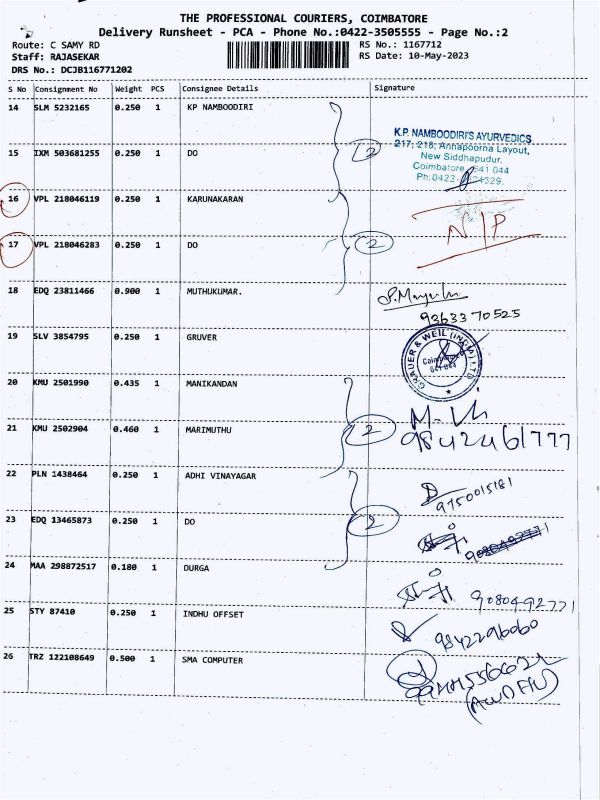 THE PROFESSIONAL COURIERS, COIMBATORE
Delivery Runsheet - PCA - Phone No.:0422-3505555 - Page No.:2
Route: C SAMY RD
RS No.: 1167712
Staff: RAJASEKAR
RS Date: 10-May-2023
DRS No.: DCJB116771202
S No Consignment No Weight PCS Consignee Details Signature
14 SLM 5232165 0.250 1 KP NAMBOODIRI
K.P. NAMBOODIRI'S AYURVEDICS
217, 218, Annapoorna Layout,
New Siddhapudur,
Coimbatore 641 044
15 IXM 503681255 0.250 1 DO
2
16 VPL 218046119 0.250 1 KARUNAKARAN
N/P
17 VPL 218046283 0.250 1 DO
2
18 EDQ 23811466 0.900 1 MUTHUKUMAR.
9363370525
19 SLV 3854795 0.250 1 GRUVER
GRAUER & WEIL (INDIA) LTD
Coimbatore
641 044
20 KMU 2501990 0.435 1 MANIKANDAN
21 KMU 2502904 0.460 1 MARIMUTHU
2
9842461777
22 PLN 1438464 0.250 1 ADHI VINAYAGAR
9750015181
23 EDQ 13465873 0.250 1 DO
2
24 MAA 298872517 0.180 1 DURGA
9080492771
25 STY 87410 0.250 1 INDHU OFFSET
9842296060
26 TRZ 122108649 0.500 1 SMA COMPUTER